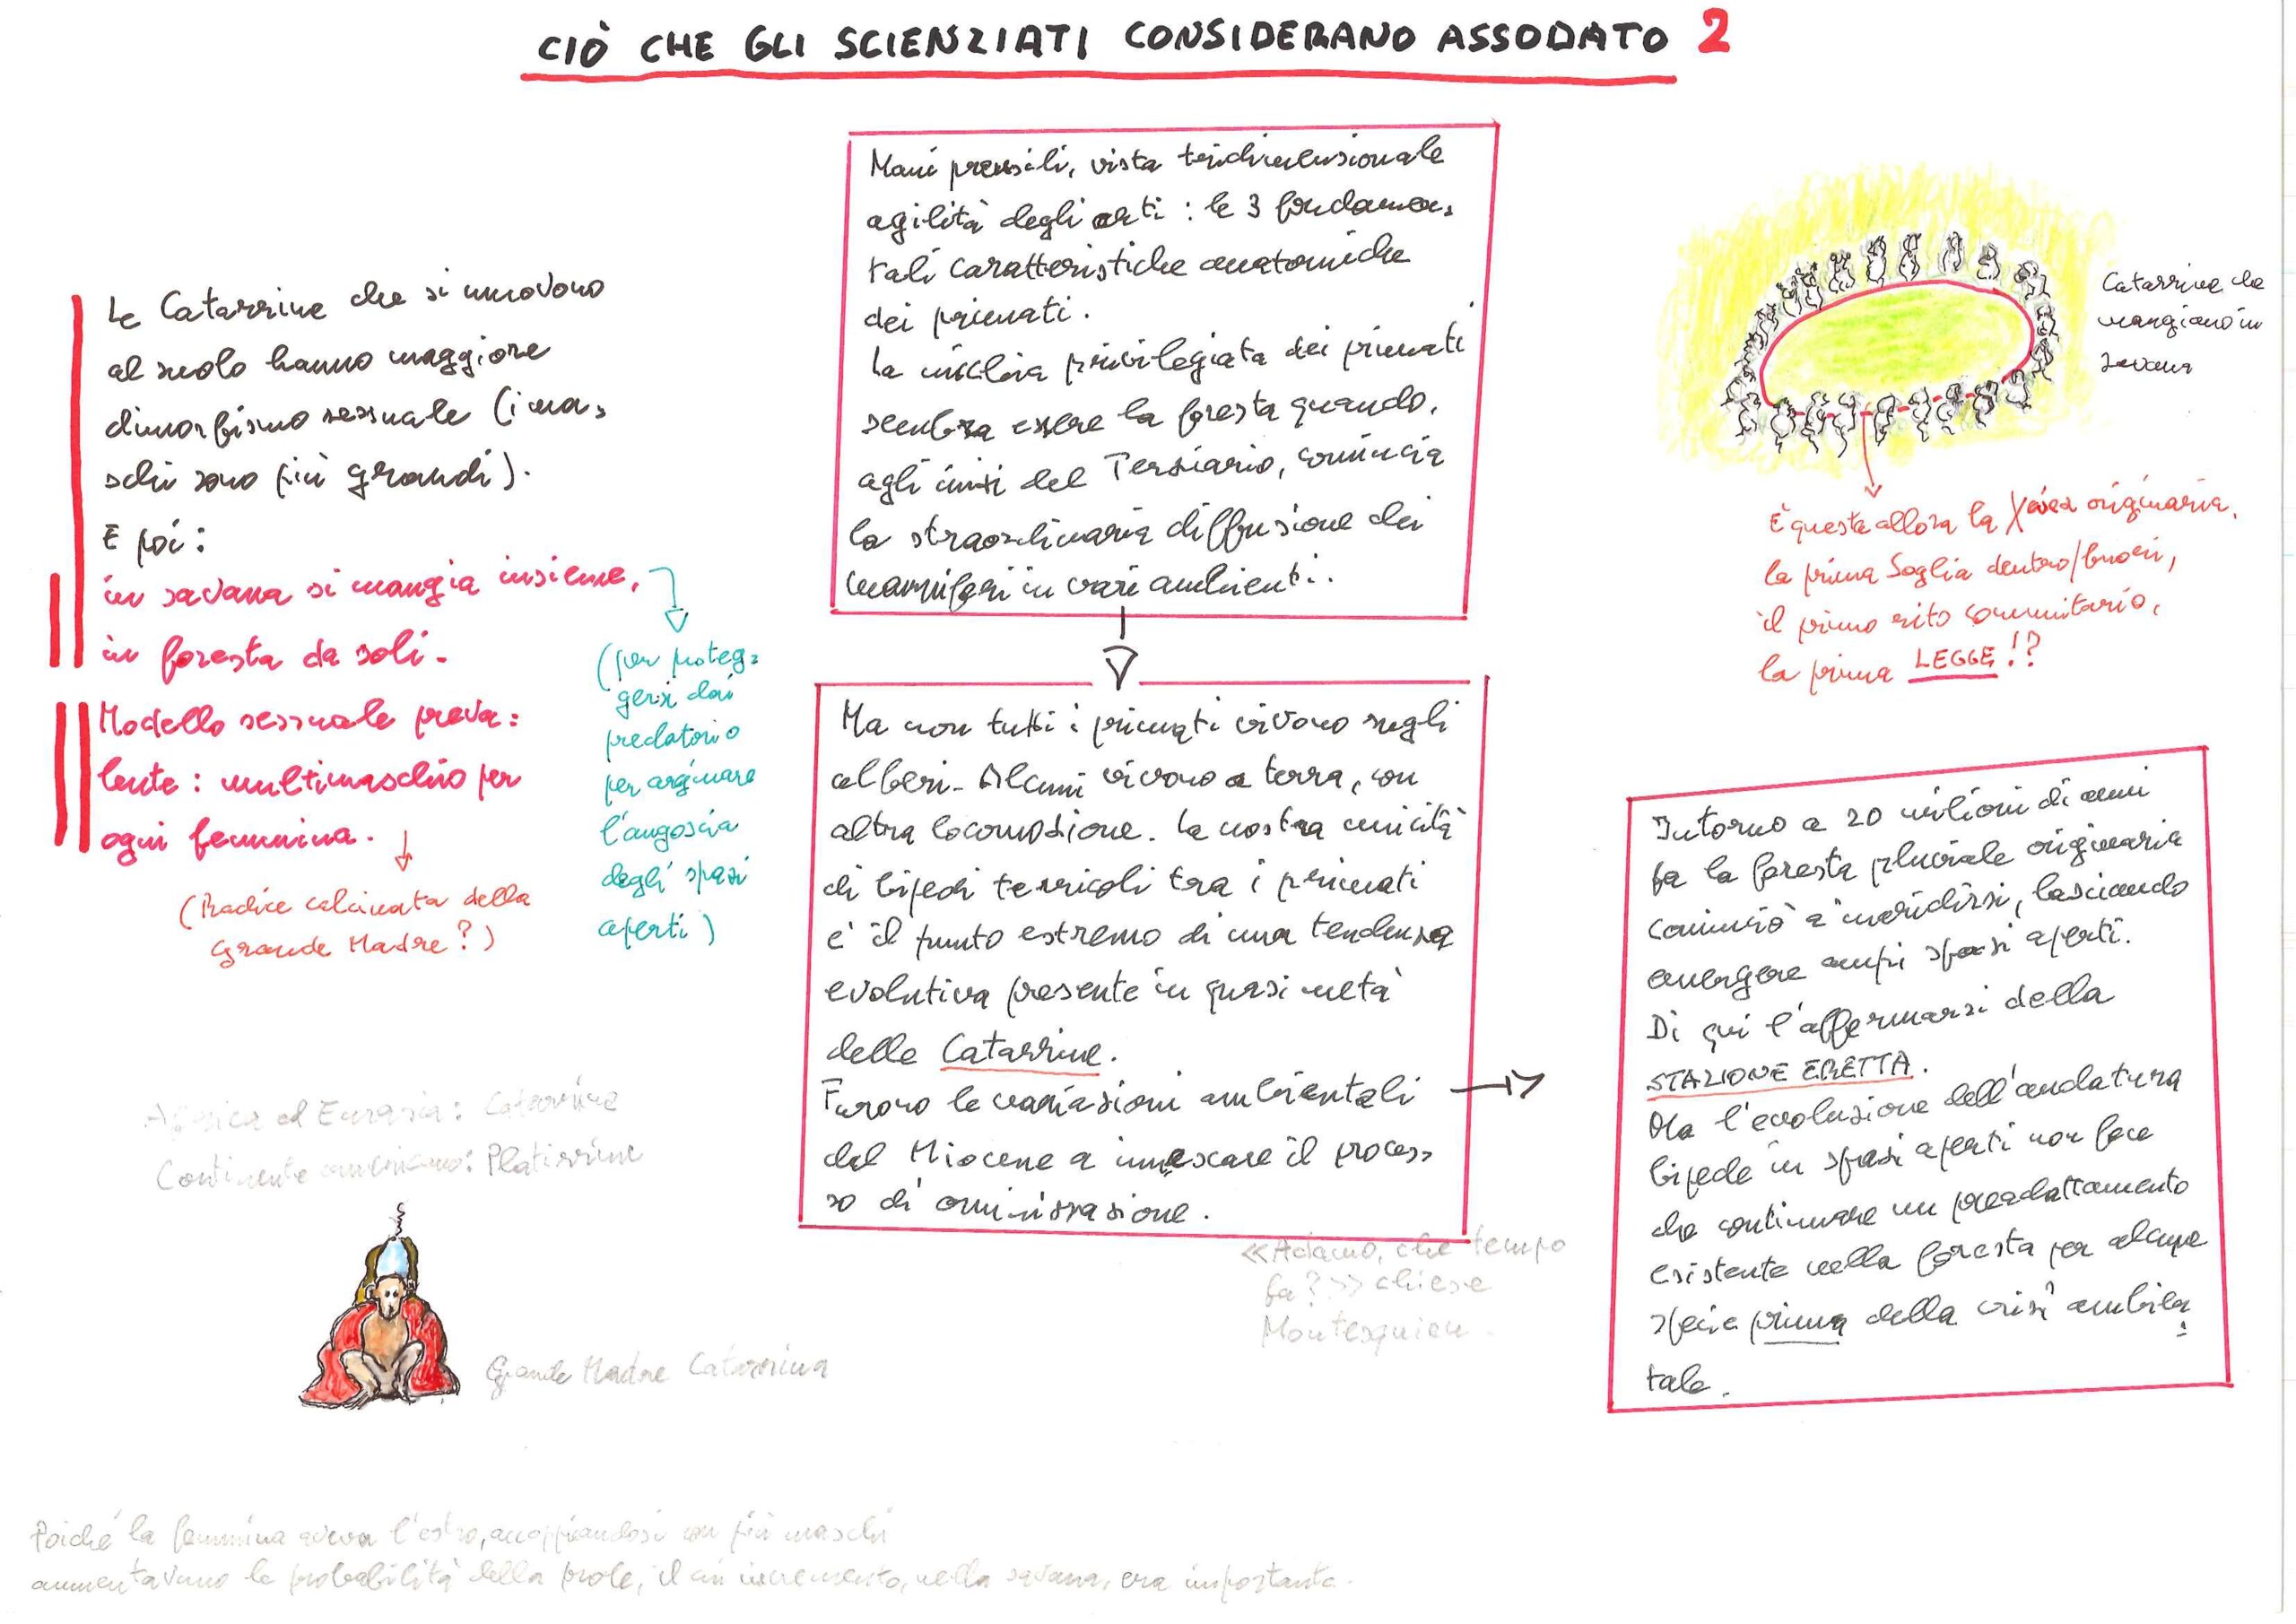 CIÒ CHE GLI SCIENZIATI CONSIDERANO ASSODATO 2
Le Catarrine che si muovono
al suolo hanno maggiore
dimorfismo sessuale (i ma=
schi sono più grandi).
E poi:
in savana si mangia insieme,
in foresta da soli.
(per proteg=
gersi dai
predatori o
per arginare
l'angoscia
degli spazi
aperti)
Modello sessuale preva=
lente: multimaschio per
ogni femmina.
(Radice calcinata della
Grande Madre?)
Africa ed Eurasia: Catarrine
Continente americano: Platirrine
Grande Madre Catarrina
Mani prensili, vista tridimensionale
agilità degli arti: le 3 fondamen=
tali caratteristiche anatomiche
dei primati.
La nicchia privilegiata dei primati
sembra essere la foresta quando,
agli inizi del Terziario, comincia
la straordinaria diffusione dei
mammiferi in vari ambienti.
Ma non tutti i primati vivono sugli
alberi. Alcuni vivono a terra, con
altra locomozione. La nostra unicità
di bipedi terricoli tra i primati
è il punto estremo di una tendenza
evolutiva presente in quasi metà
delle Catarrine.
Furono le variazioni ambientali
del Miocene a innescare il proces=
so di ominizzazione.
«Adamo, che tempo
fa?» chiese
Montesquieu.
Catarrine che
mangiano in
savana
È questa allora la originaria,
la prima Soglia dentro/fuori,
il primo rito comunitario,
la prima LEGGE!?
Intorno a 20 milioni di anni
fa la foresta pluviale originaria
cominciò a inaridirsi, lasciando
emergere ampi spazi aperti.
Di qui l'affermarsi della
STAZIONE ERETTA.
Ma l'evoluzione dell'andatura
bipede in spazi aperti non fece
che continuare un preadattamento
esistente nella foresta per alcune
specie prima della crisi ambien=
tale.
Poiché la femmina aveva l'estro, accoppiandosi con più maschi
aumentavano le probabilità della prole, il cui incremento, nella savana, era importante.